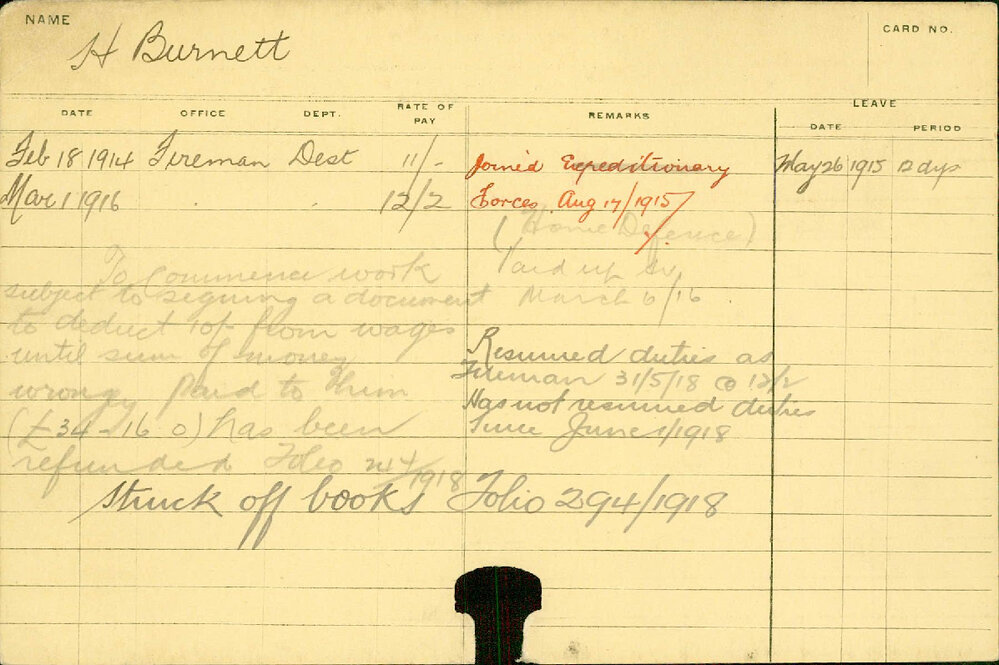 NAME
H Burnett
CARD NO.
DATE OFFICE DEPT. RATE OF PAY REMARKS LEAVE
DATE PERIOD
Feb 18 1914 Fireman Dest 11/-
Mar 1 1916 " " 12/2
Joined Expeditionary
Forces. Aug 17/1915
(Home Defence)
Paid up to
March 6/16
May 26 1915 12 dys
To commence work
subject to signing a document
to deduct 10/- from wages
until sum of money
wrongy paid to him
(£34-16 0) has been
refunded Folio 214/1918
Resumed duties as
Fireman 31/5/18 @ 12/2
Has not resumed duties
since June 1/1918
Struck off books Folio 294/1918